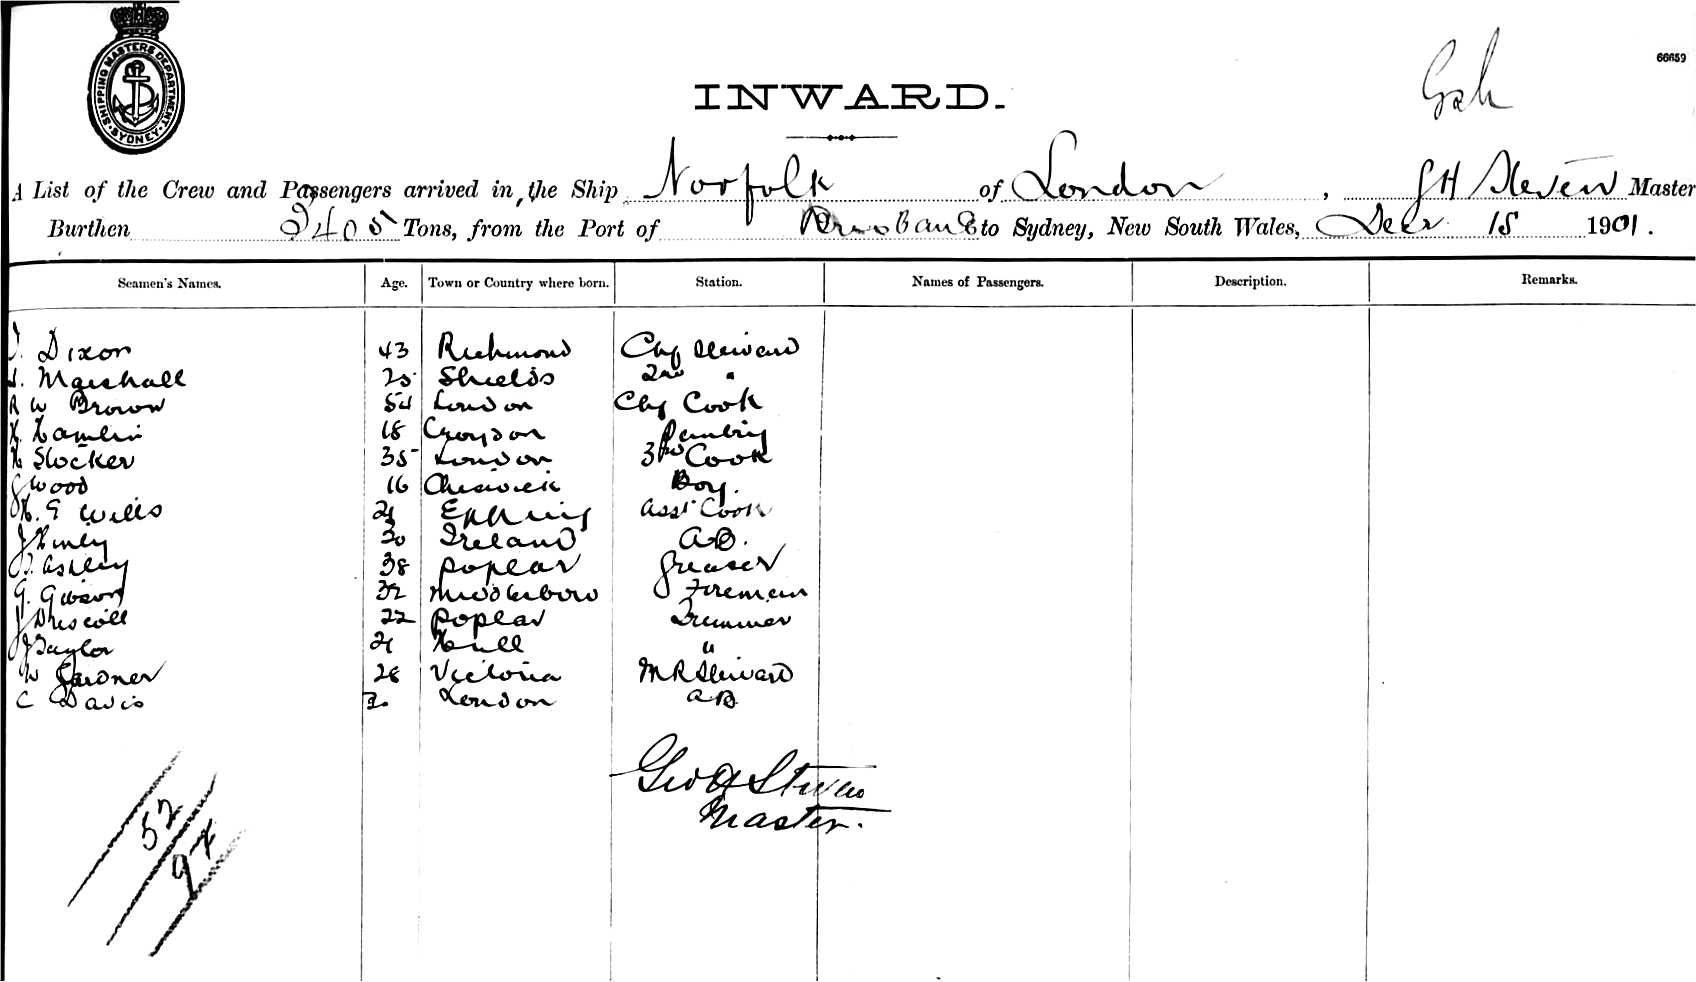 SHIPPING MASTERS DEPARTMENT · SYDNEY ·
66659
INWARD.
A List of the Crew and Passengers arrived in the Ship Norfolk of London, G H Steven Master
Burthen 3405 Tons, from the Port of Brisbane to Sydney, New South Wales, Decr 15 1901.
Seamen's Names. Age. Town or Country where born. Station. Names of Passengers. Description. Remarks.
Dixon 43 Richmond Chf Steward
Marshall 25 Shields 2nd "
R W Brown 54 London Chf Cook
H. Hamlin 18 Croydon
H Stocker 35 London 3rd Cook
J Wood 16 Chiswick Boy.
H. G Wills 21 Epping Asst Cook
J 30 Ireland A.B.
Ashley 38 Poplar Greaser
G. Gibson 32 Middlesboro Fireman
J Driscoll 22 Poplar Trimmer
J Taylor 21 Hull "
W Gardner 28 Victoria M R Steward
C Davis London AB
Geo H Steven
Master.
52
97